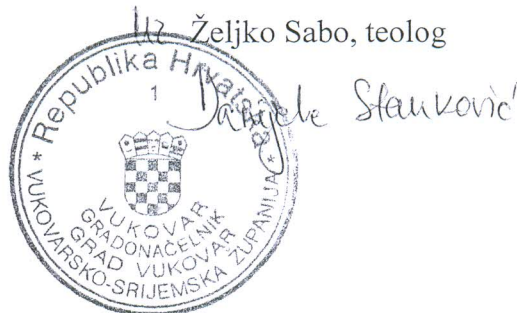 uz Željko Sabo, teolog
Danijela Stanković
Republika Hrvatska
1
* VUKOVARSKO-SRIJEMSKA ŽUPANIJA *
GRAD VUKOVAR
GRADONAČELNIK
VUKOVAR